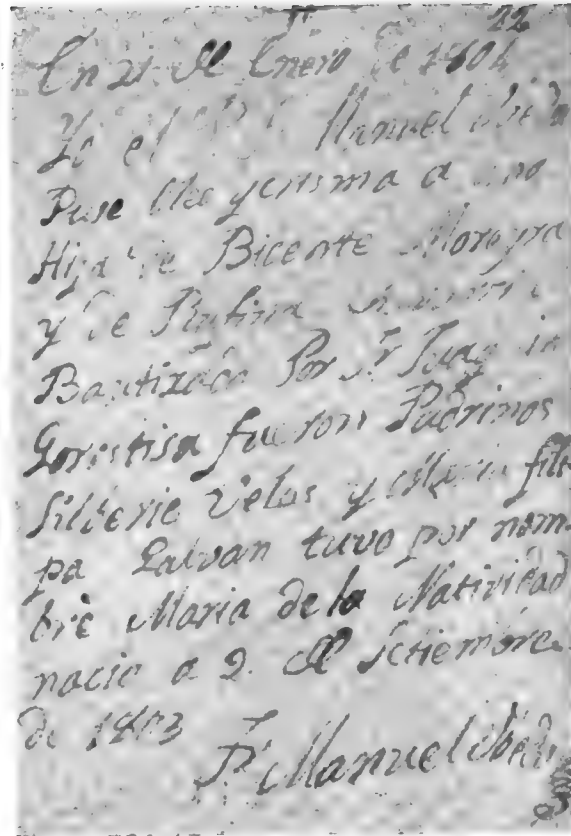 22
En 21 de Enero de 1804
Yo el Manuel
Puse Oleo y crisma a una
Hija de Bicente Moreyra
y de
Bautizada Por Fr
Gorostisa fueron Padrinos
Silberie Velas y Maria Fili
pa Galvan tuvo por nom
bre Maria de la Natividad
nacio a 9 de Setiembre
de 1803
Fr Manuel